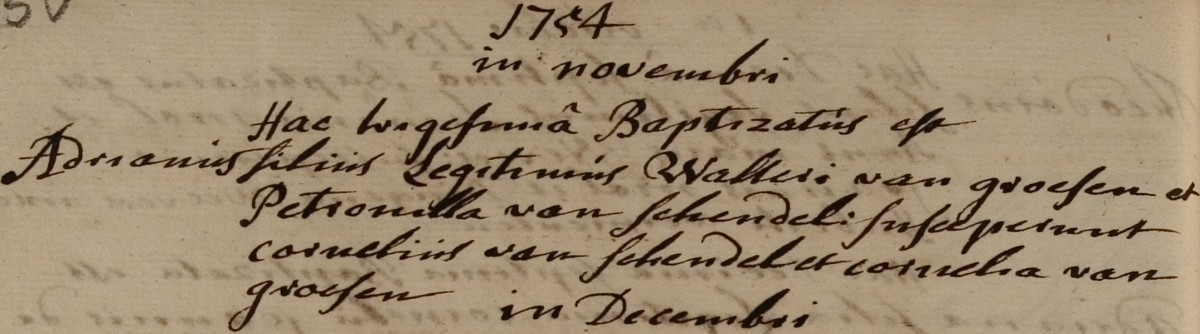 1754
in novembri
Hac trigesimâ Baptizatus est
Adrianus filius Legitimus Walteri van groesen et
Petronilla van schendel: susceperunt
cornelius van schendel et cornelia van
groesen
in Decembri